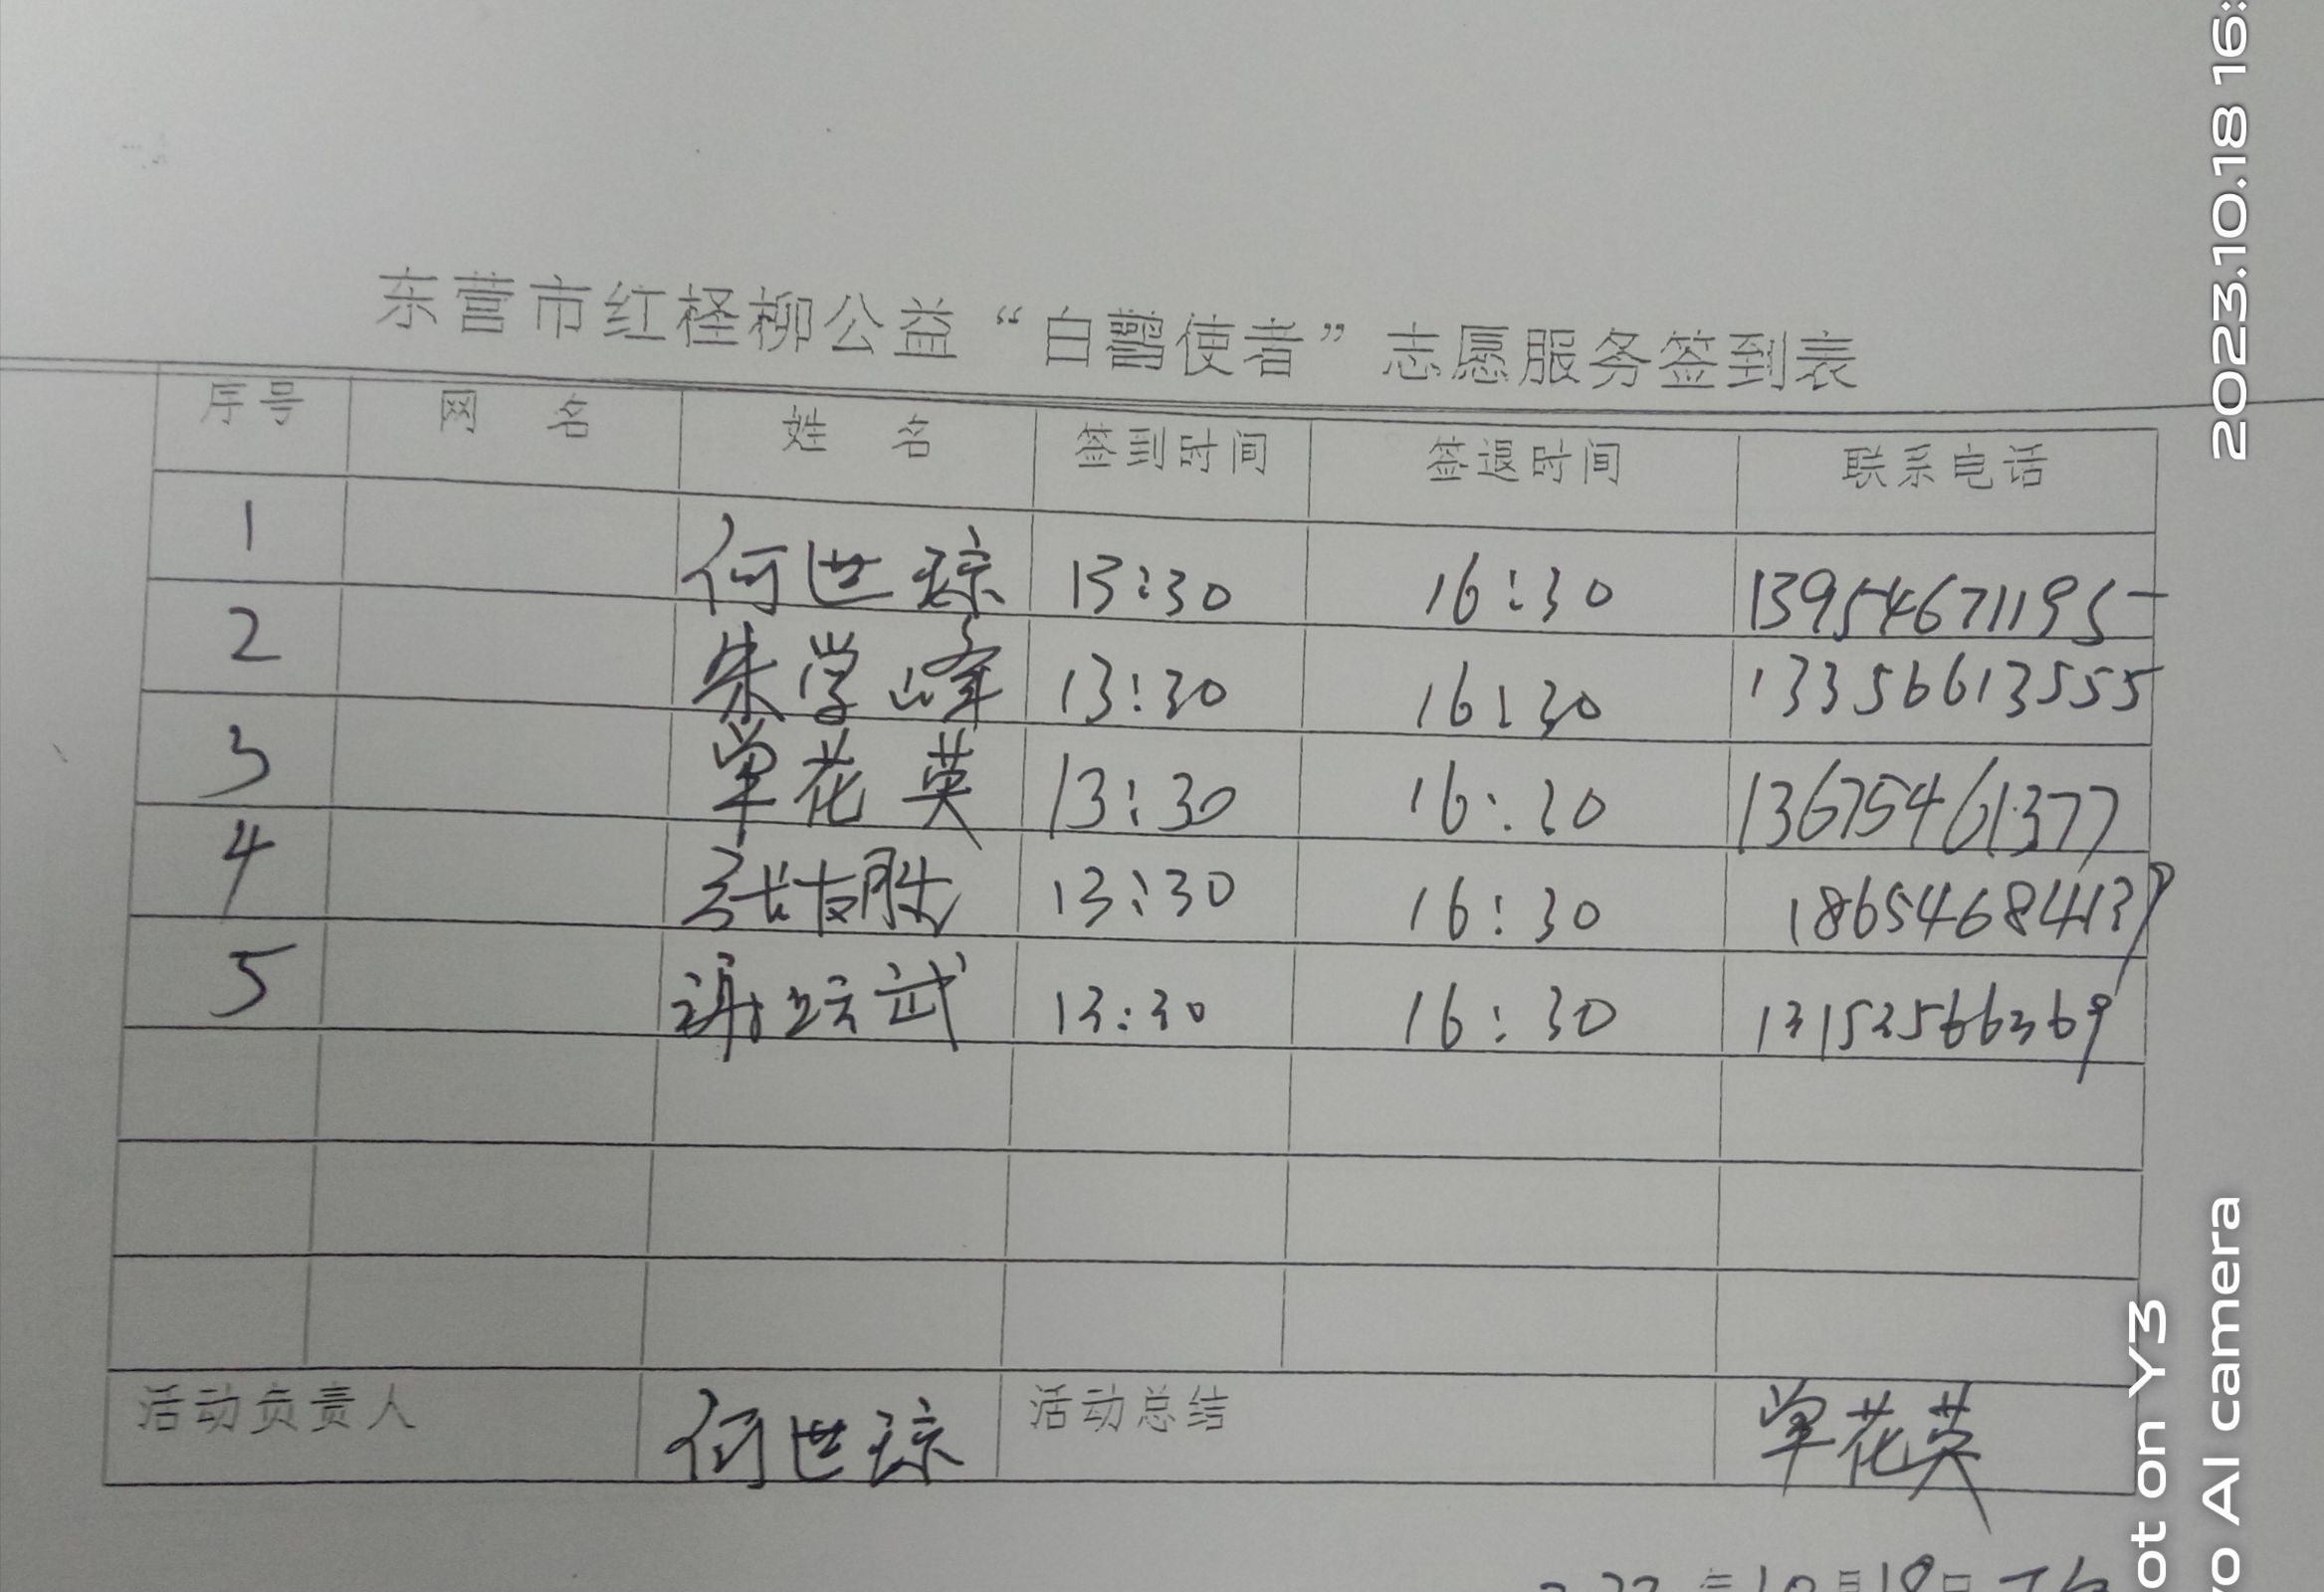 东营市红柽柳公益“白鹭使者”志愿服务签到表
序号 网 名 姓 名 签到时间 签退时间 联系电话
1 何世琼 13:30 16:30 13954671195
2 朱学峰 13:30 16:30 13356613555
3 单花英 13:30 16:30 13675461377
4 张友胜 13:30 16:30 18654684139
5 谢立武 13:30 16:30 13152566369
活动负责人 何世琼 活动总结 单花英
年10月18日
2023.10.18 16:
ot on Y3
vo AI camera